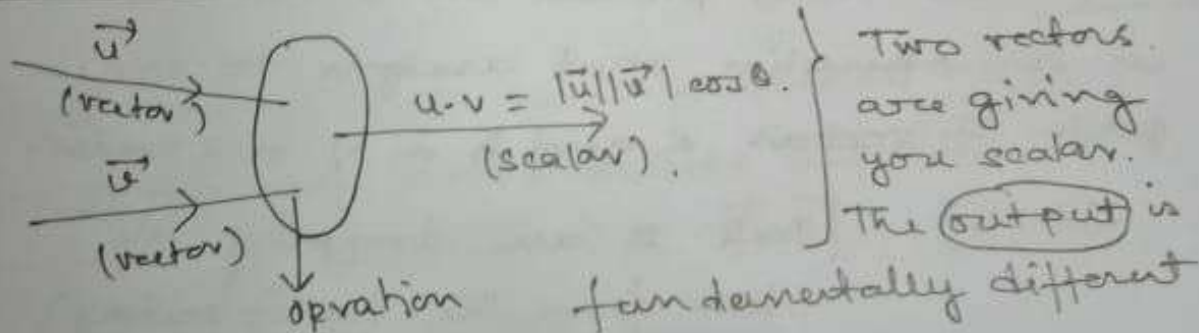 u⃗
(vector)
v⃗
(vector)
opration
u.v = |u⃗||v⃗| cos θ.
(scalar).
Two vectors.
are giving
you scalar.
The output is
fundamentally different